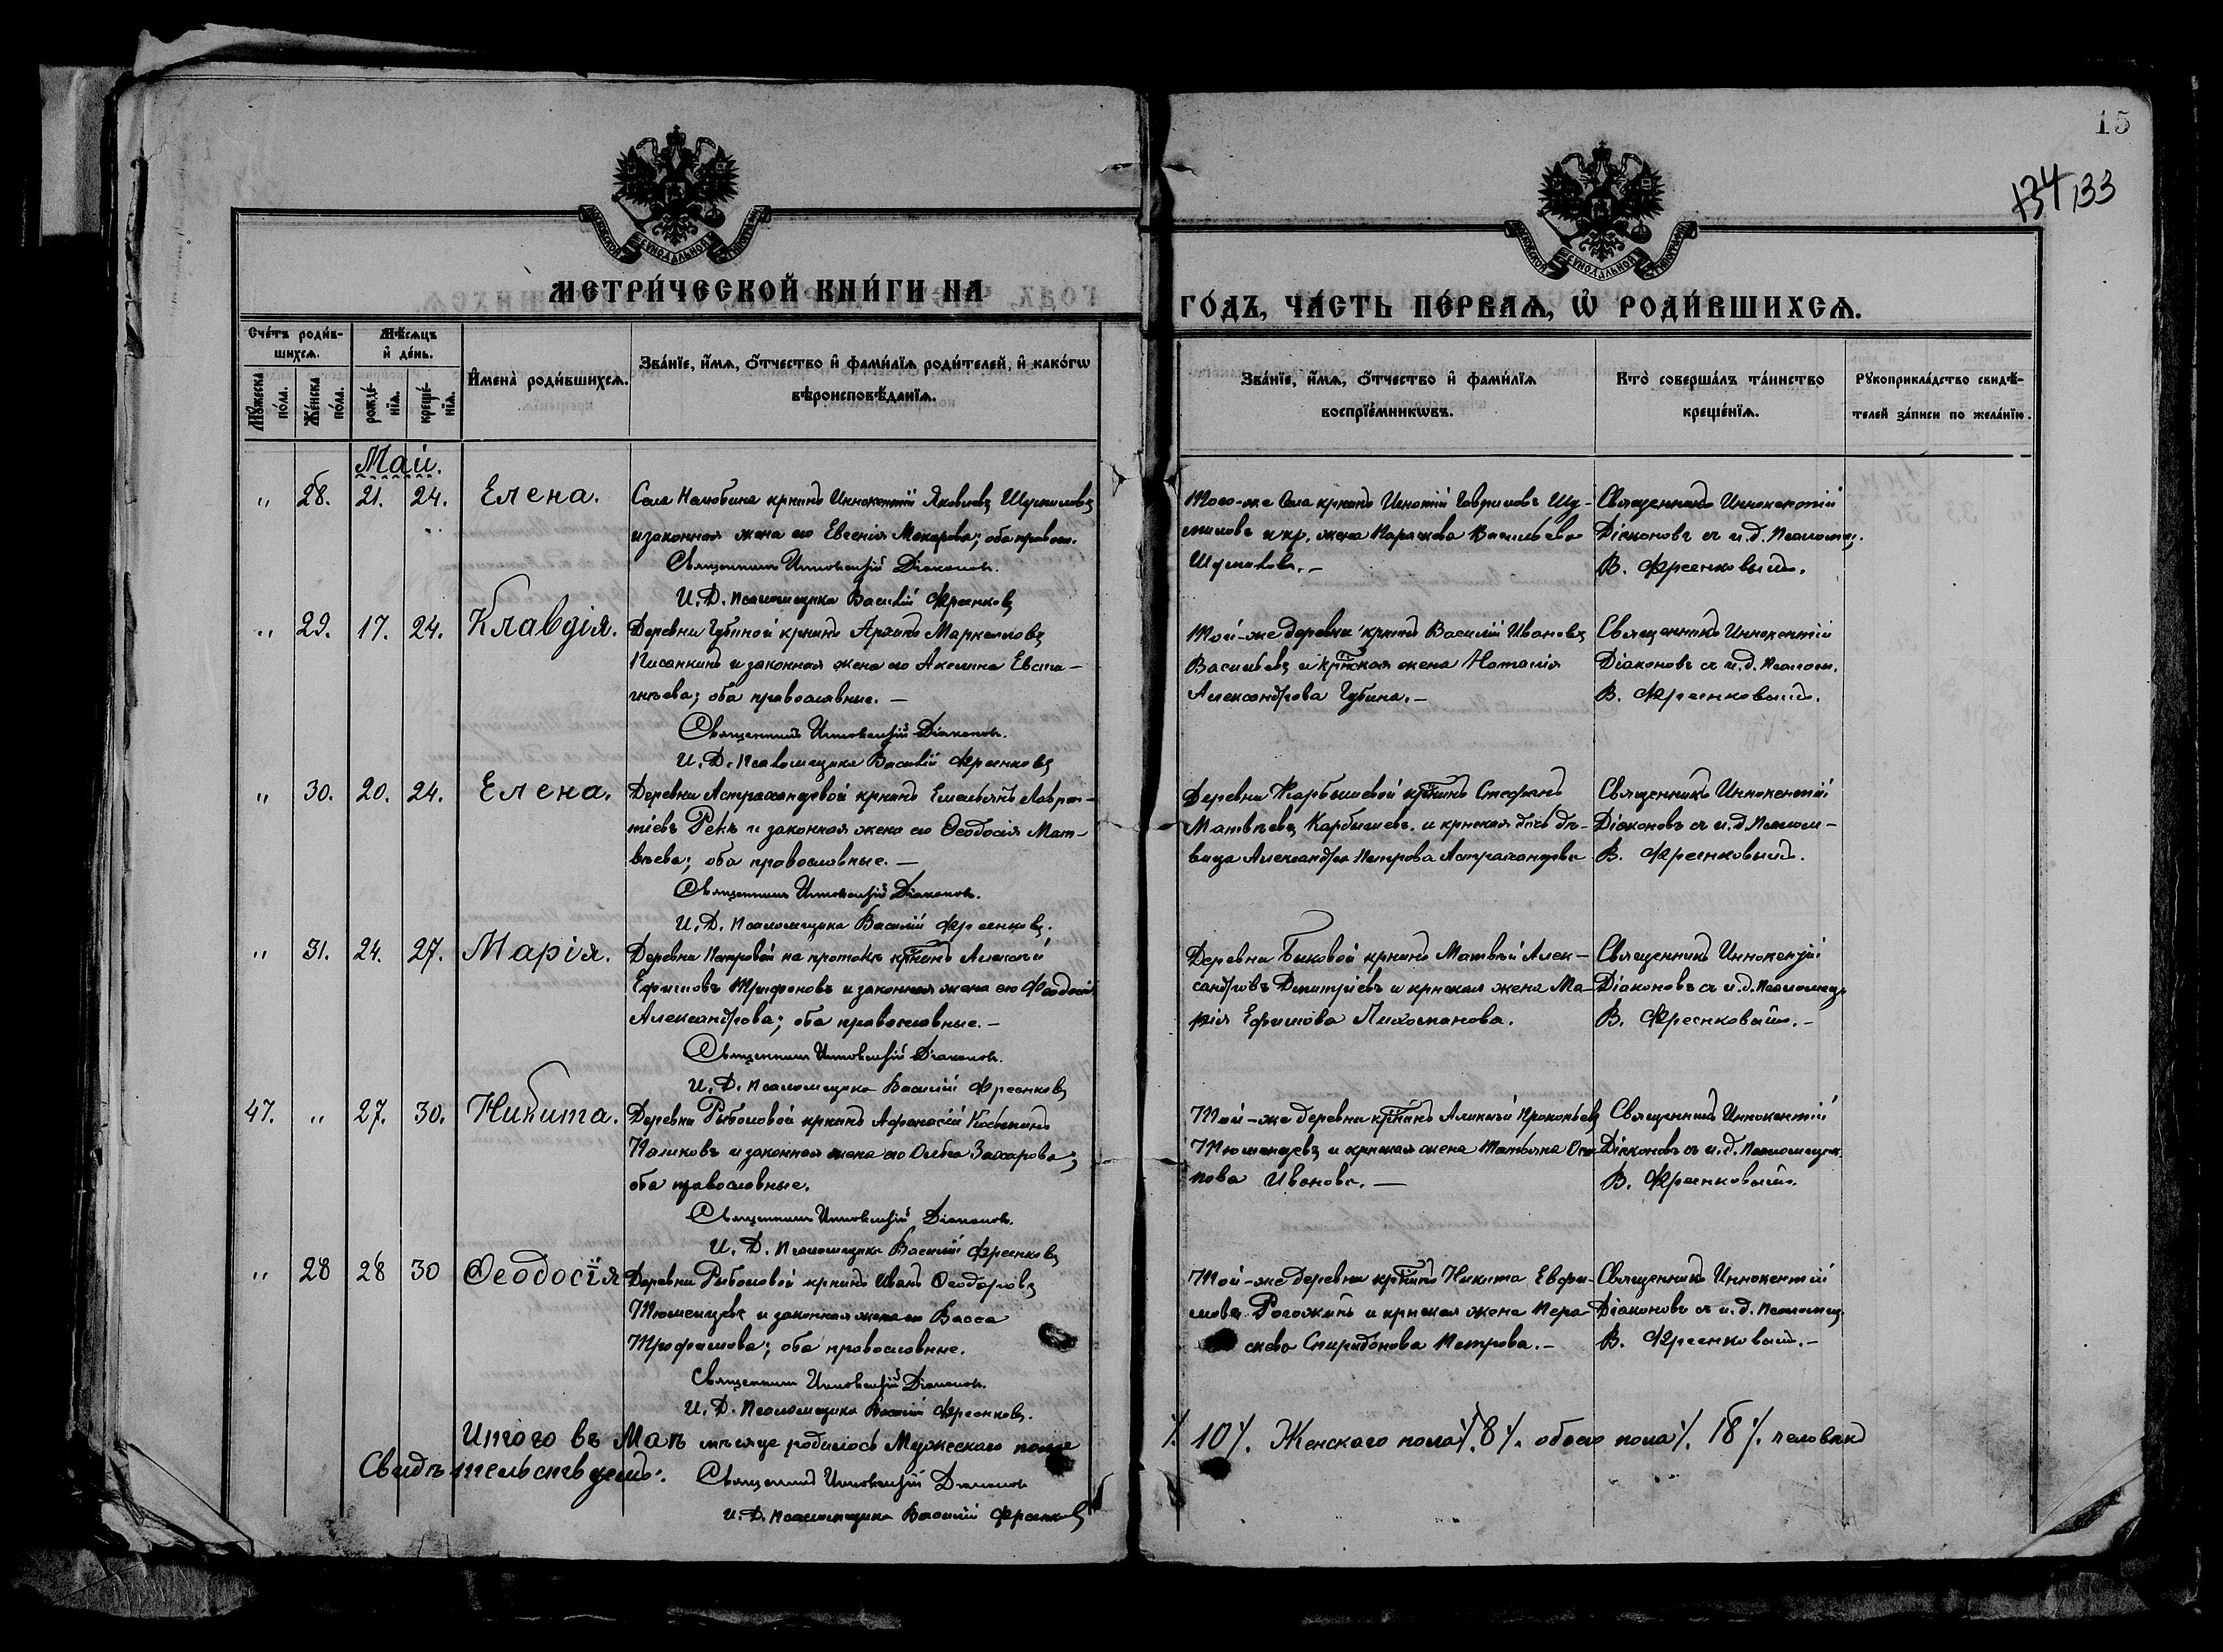 15
134 133
МЕТРИ́ЧЕСКОЙ КНИ́ГИ НА
ГО́ДЪ, ЧА́СТЬ ПЕ́РВАѦ, Ѡ҆ РОДИ́ВШИХСѦ.
Сче́тъ роди́в-
шихсѧ.
Мѣ́сѧцъ
и҆ де́нь.
Мꙋ́жеска
по́ла.
Же́нска
по́ла.
рожде́-
нїѧ.
креще́-
нїѧ.
И҆мена̀ роди́вшихсѧ.
Зва́нїе, и҆́мѧ, ѻ҆́тчество и҆ фами́лїѧ роди́телей, и҆ како́гѡ
вѣроисповѣ́данїѧ.
Зва́нїе, и҆́мѧ, ѻ҆́тчество и҆ фами́лїѧ
воспрїе́мникѡвъ.
Кто̀ соверша́лъ та́инство
креще́нїѧ.
Рꙋкоприкла́дство свидѣ́-
телей за́писи по жела́нїю.
Май.
" 28. 21. 24. Елена.
Села кркнъ Иннокентій Яковлевъ
и законная жена его Евгенія Макарова; оба правосл.
Священникъ Иннокентій Діаконов.
И. Д. Псаломщика Василій
Того-же села кркнъ Игнатій Гавриловъ Шу-
миловъ и кр. жена Параскева Васильева
Шумилова. –
Священникъ Иннокентій
Діаконовъ съ и. д. Псаломщ.
В.
" 29. 17. 24. Клавдія.
Деревни Губиной кркнъ Архипъ Маркеловъ
Писанкинъ и законная жена его Акилина Евста-
гнѣева; оба православные. –
Священникъ Иннокентій Діаконов.
И. Д. Псаломщика Василій
Той-же деревни кркнъ Василій Ивановъ
Васильевъ и крнская жена Наталія
Александрова Губина. –
Священникъ Иннокентій
Діаконовъ съ и. д. Псалом.
В.
" 30. 20. 24. Елена.
Деревни Астраханцевой кркнъ Емельянъ Лаврен-
тіевъ Рекъ и законная жена его Ѳеодосія Мат-
вѣева; оба православные. –
Священникъ Иннокентій Діаконов.
И. Д. Псаломщика Василій
Деревни Карбышевой кркнъ Стефанъ
Матвѣевъ Карбышевъ и крнская дочь дѣ-
вица Александра Петрова Астраханцева
Священникъ Иннокентій
Діаконовъ съ и. д. Псалом-
В.
" 31. 24. 27. Марія.
Деревни Петровой на протокѣ кркнъ Алексѣй
Ефимовъ Трифоновъ и законная жена его Феодосія
Александрова; оба православные. –
Священникъ Иннокентій Діаконов.
И. Д. Псаломщика Василій
Деревни Быковой кркнъ Матвѣй Алек-
сандровъ Димитріевъ и крнская жена Ма-
рія Ефимова Лихоманова.
Священникъ Иннокентій
Діаконовъ съ и. д. Псаломщ.
В.
47. " 27. 30. Никита.
Деревни Рыболовой кркнъ Афанасій
и законная жена его Ольга Захарова;
оба православные.
Священникъ Иннокентій Діаконов.
И. Д. Псаломщика Василій
Той-же деревни кркнъ Алексѣй Прокопьевъ
Тюменцевъ и крнская жена Татьяна Оси-
пова Иванова. –
Священникъ Иннокентій
Діаконовъ съ и. д. Псаломщик.
В.
" 28 28 30 Ѳеодосія
Деревни Рыболовой кркнъ Иванъ Ѳеодоровъ
Тюменцевъ и законная жена его Васса
Трофимова; оба православные.
Священникъ Иннокентій Діаконов.
И. Д. Псаломщика Василій
Той-же деревни кркнъ Никита Евфи-
мовъ Рогожинъ и крнская жена Пара-
скева Спиридонова Петрова. –
Священникъ Иннокентій
Діаконовъ съ и. д. Псаломщ.
В.
Итого въ Маѣ мѣсяце родилось Мужескаго пола
10 ⁒. Женскаго пола ⁒. 8 ⁒. обоего пола ⁒. 18 ⁒. человѣкъ
Свидѣтельствуемъ: Священникъ Иннокентій Діаконов
И. Д. Псаломщика Василій